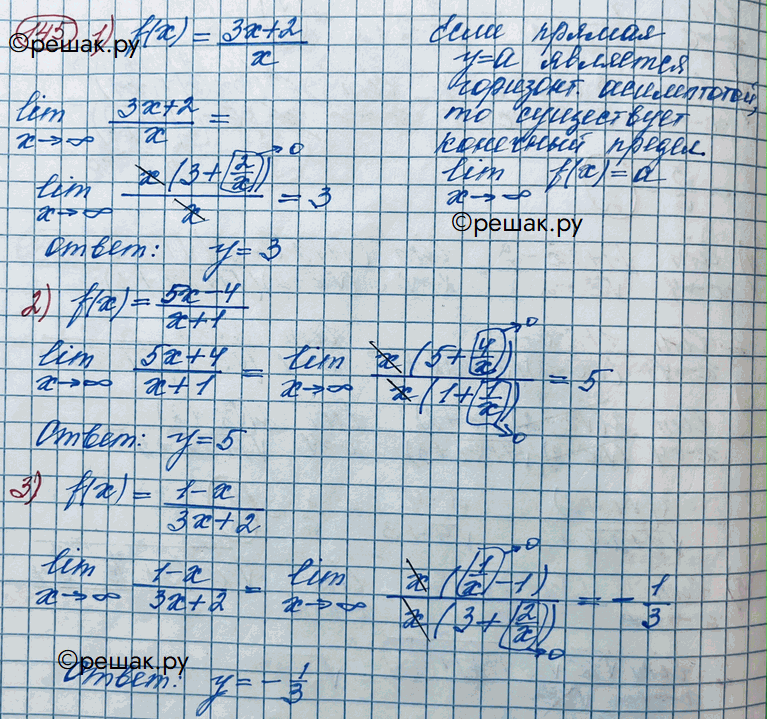 145 1) f(x) = (3x+2)/x
©решак.ру
Если прямая
y=a является
горизонт. асимптотой,
то существует
конечный предел
lim x→∞ f(x)=a
©решак.ру
lim x→∞ (3x+2)/x =
lim x→∞ x(3+2/x)/x = 3
→0
ответ: y=3
2) f(x)= (5x-4)/(x+1)
lim x→∞ (5x+4)/(x+1) = lim x→∞ x(5+4/x)/x(1+1/x) = 5
→0
→0
Ответ: y=5
3) f(x)= (1-x)/(3x+2)
lim x→∞ (1-x)/(3x+2) = lim x→∞ x(1/x-1)/x(3+2/x) = -1/3
→0
→0
©решак.ру
Ответ: y=-1/3